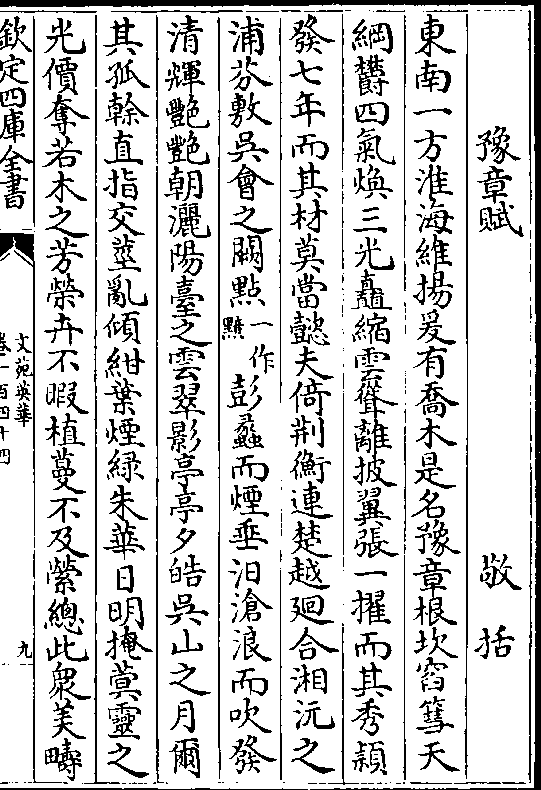 豫章賦　敬括
東南一方淮海維揚爰有喬木是名豫章根坎窞篲天
綱欝四氣煥三光矗縮雲聳離披翼張一擢而其秀穎
發七年而其材莫當懿夫倚荆衡連楚越廻合湘沅之
浦芬敷吳會之闕點一作㸃彭蠡而煙垂汨滄浪而吹發
清輝艷艷朝灑陽臺之雲翠影亭亭夕皓吳山之月爾
其孤榦直指交莖亂傾紺葉煙緑朱華日明掩蓂靈之
光價奪若木之芳榮卉不暇植蔓不及縈總此衆美疇
欽定四庫全書
文苑英華
卷一百四十四
九